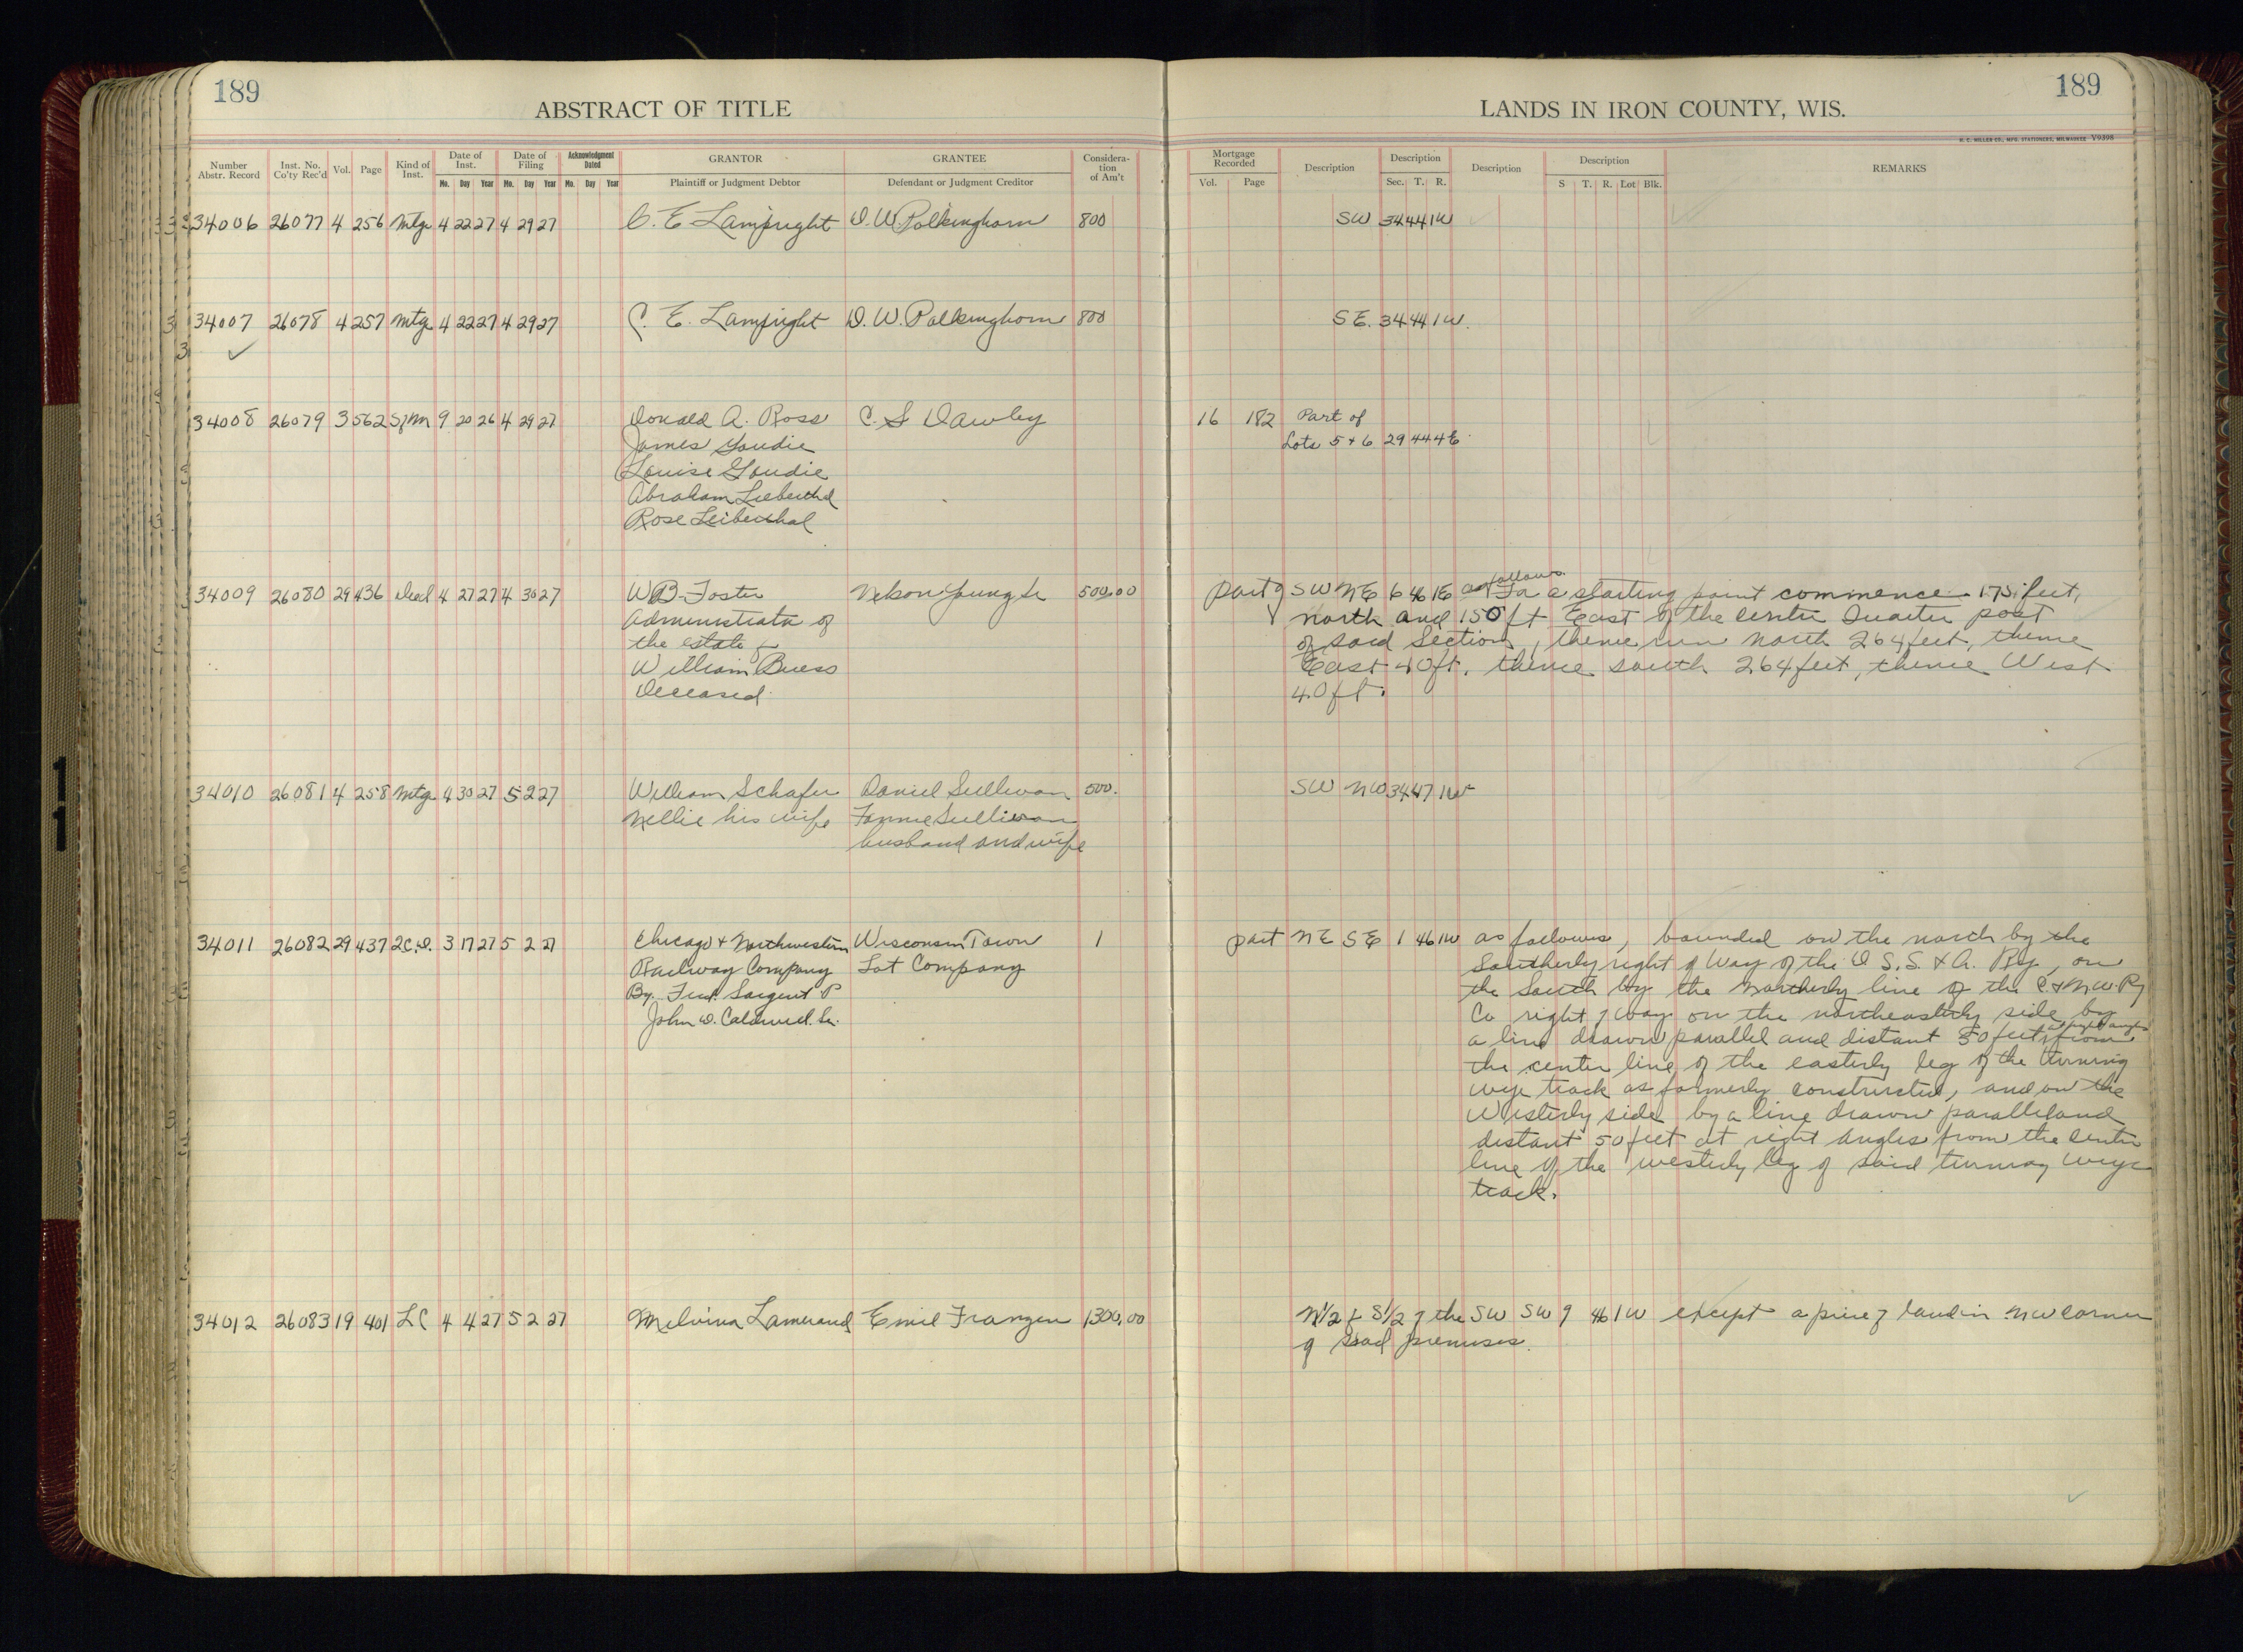 189
ABSTRACT OF TITLE
LANDS IN IRON COUNTY, WIS.
189
H. C. MILLER CO., MFG. STATIONERS, MILWAUKEE V9398
Number Abstr. Record
Inst. No. Co'ty Rec'd
Vol.
Page
Kind of Inst.
Date of Inst.
Mo. Day Year
Date of Filing
Mo. Day Year
Acknowledgment Dated
Mo. Day Year
GRANTOR
Plaintiff or Judgment Debtor
GRANTEE
Defendant or Judgment Creditor
Considera-tion of Am't
Mortgage Recorded
Vol. Page
Description
Description
Sec. T. R.
Description
Description
S T. R. Lot Blk.
REMARKS
34006 26077 4 256 Mtge 4 22 27 4 29 27 C. E. Lampright D. W. Polkinghorn 800 SW 34 44 1W
34007 26078 4 257 Mtge 4 22 27 4 29 27 C. E. Lampright D. W. Polkinghorn 800 SE. 34 44 1W.
34008 26079 3 562 SfM 9 20 26 4 29 27 Donald A. Ross C. S Dawley 16 182 Part of
James Goudie Lots 5 + 6 29 44 4E
Louise Goudie
Abraham Lieberthal
Rose Leiberthal
34009 26080 29 436 Deed 4 27 27 4 30 27 W B Foster Nelson Young Sr 500.00 part of SW NE 6 46 1E as follows For a starting point commence 175 feet,
Administrator of north and 150 ft East of the center Quarter post
the estate of of said Section, thence run north 264 feet, thence
William Buess East 40 ft. thence south 264 feet, thence West
Deceased. 40 ft.
34010 26081 4 258 Mtge 4 30 27 5 2 27 William Schafer Daniel Sullivan 500. SW NW 34 47 1W
Nellie his wife Fannie Sullivan
husband and wife
34011 26082 29 437 2C.D. 3 17 27 5 2 27 Chicago + Northwestern Wisconsin Town 1 part NE SE 1 46 1W as follows, bounded on the north by the
Railway Company Lot Company Southerly right of Way of the D S.S. & A. Ry, on
By. Fred. Sargent P the South by the Northerly line of the C + N.W. Ry
John D. Caldwell Sec. Co right of way on the northeasterly side by
a line drawn parallel and distant 50 feet at right angles from
the center line of the easterly leg of the turning
wye track as formerly constructed, and on the
Westerly side by a line drawn parallel and
distant 50 feet at right angles from the center
line of the westerly leg of said turning wye
track.
34012 26083 19 401 LC 4 4 27 5 2 27 Melvina Lamerand Emil Franzen 1300.00 N1/2 of S1/2 of the SW SW 9 46 1W except a piece of land in NW corner
of said premises.